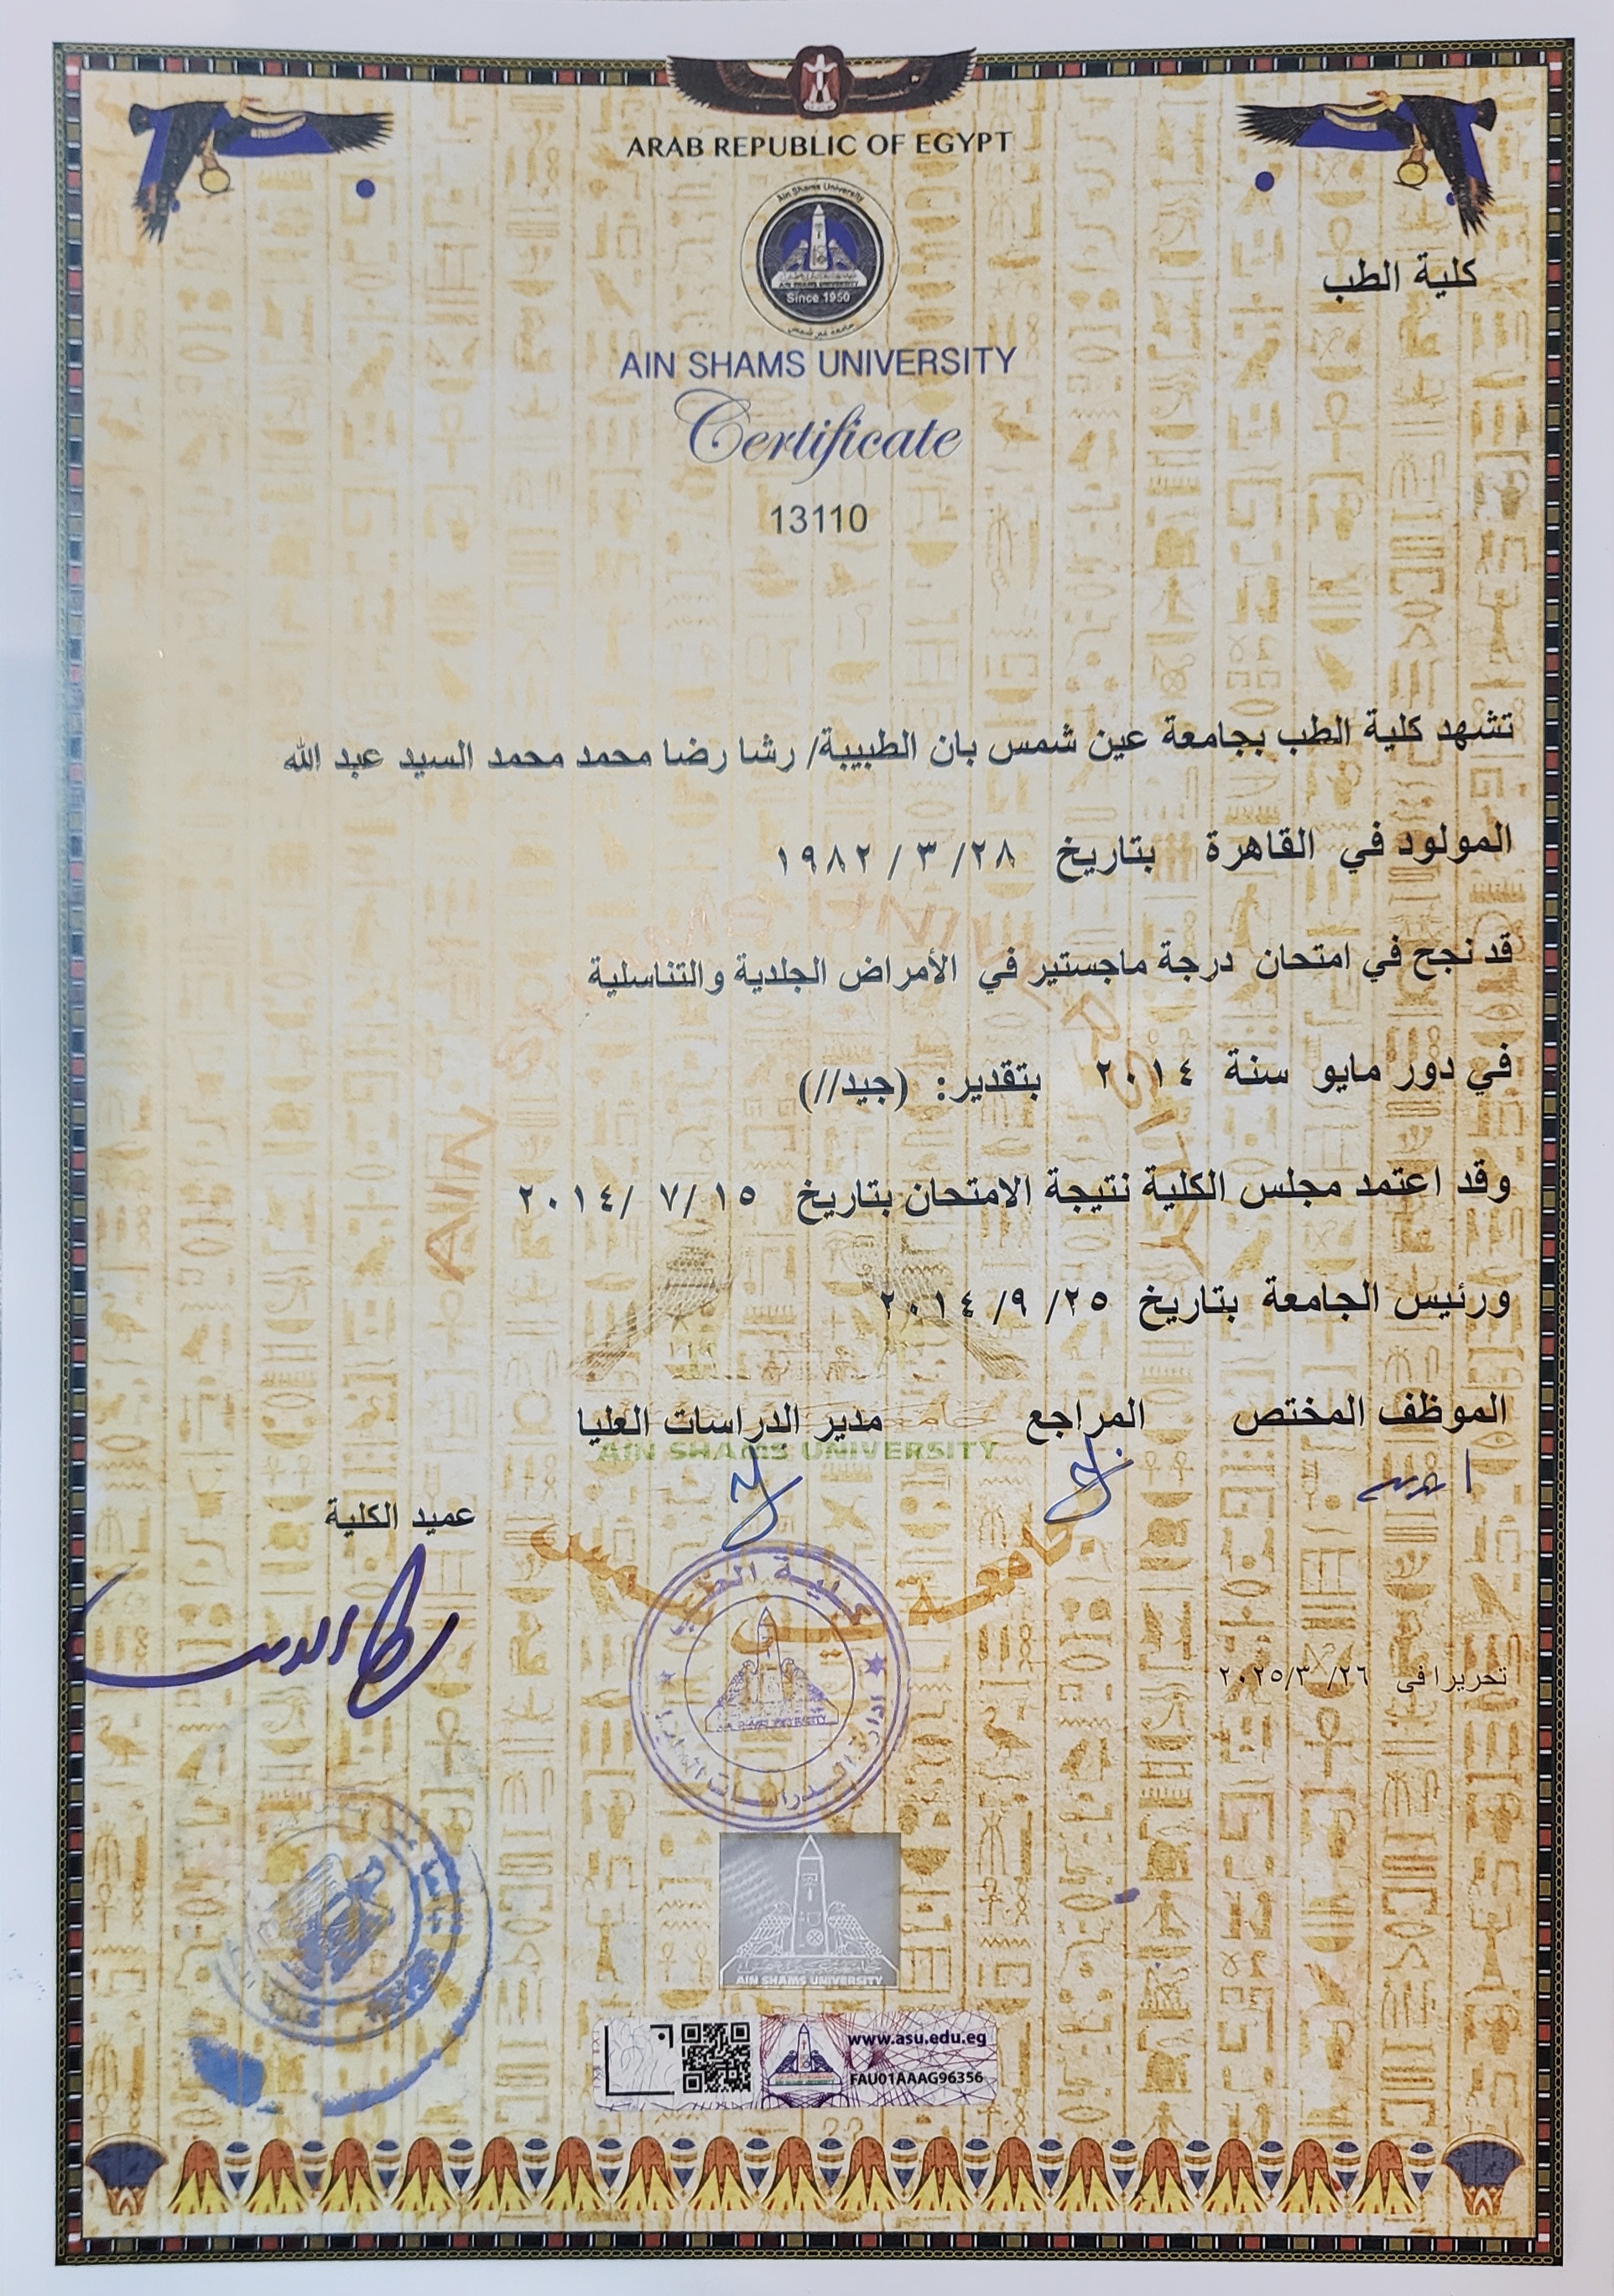 ARAB REPUBLIC OF EGYPT
Ain Shams University
AIN SHAMS UNIVERSITY
Since 1950
جامعة عين شمس
كلية الطب
AIN SHAMS UNIVERSITY
Certificate
13110
تشهد كلية الطب بجامعة عين شمس بان الطبيبة/ رشا رضا محمد محمد السيد عبد الله
المولود في القاهرة بتاريخ ٢٨/ ٣ / ١٩٨٢
قد نجح في امتحان درجة ماجستير في الأمراض الجلدية والتناسلية
في دور مايو سنة ٢٠١٤ بتقدير: (جيد//)
وقد اعتمد مجلس الكلية نتيجة الامتحان بتاريخ ١٥ /٧ /٢٠١٤
ورئيس الجامعة بتاريخ ٢٥/ ٩/ ٢٠١٤
الموظف المختص المراجع مدير الدراسات العليا
AIN SHAMS UNIVERSITY
عميد الكلية
جامعة عين شمس
كلية الطب
إدارة الدراسات العليا
تحريرا في ٢٦/ ٢٠٢٥/٣
AIN SHAMS UNIVERSITY
AIN SHAMS UNIVERSITY
www.asu.edu.eg
FAU01AAAG96356